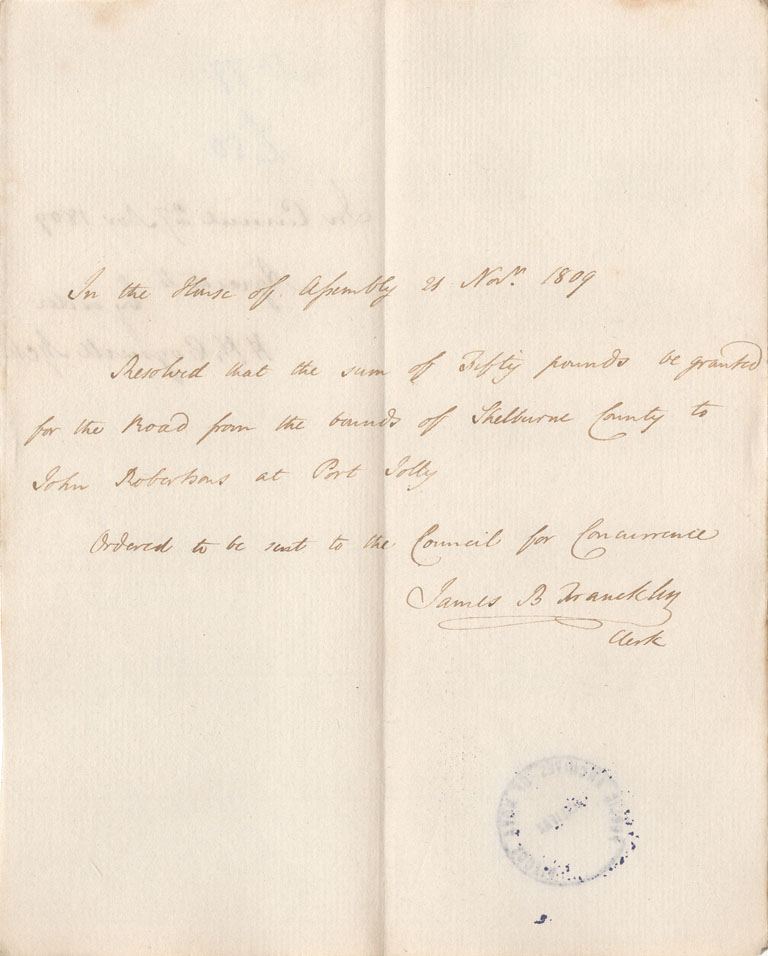 In the House of Assembly 21 Novr. 1809
Resolved that the sum of Fifty pounds be granted
for the Road from the bounds of Shelburne County to
John Robertsons at Port Jolly
Ordered to be sent to the Council for Concurrence
James B Francklin
Clerk